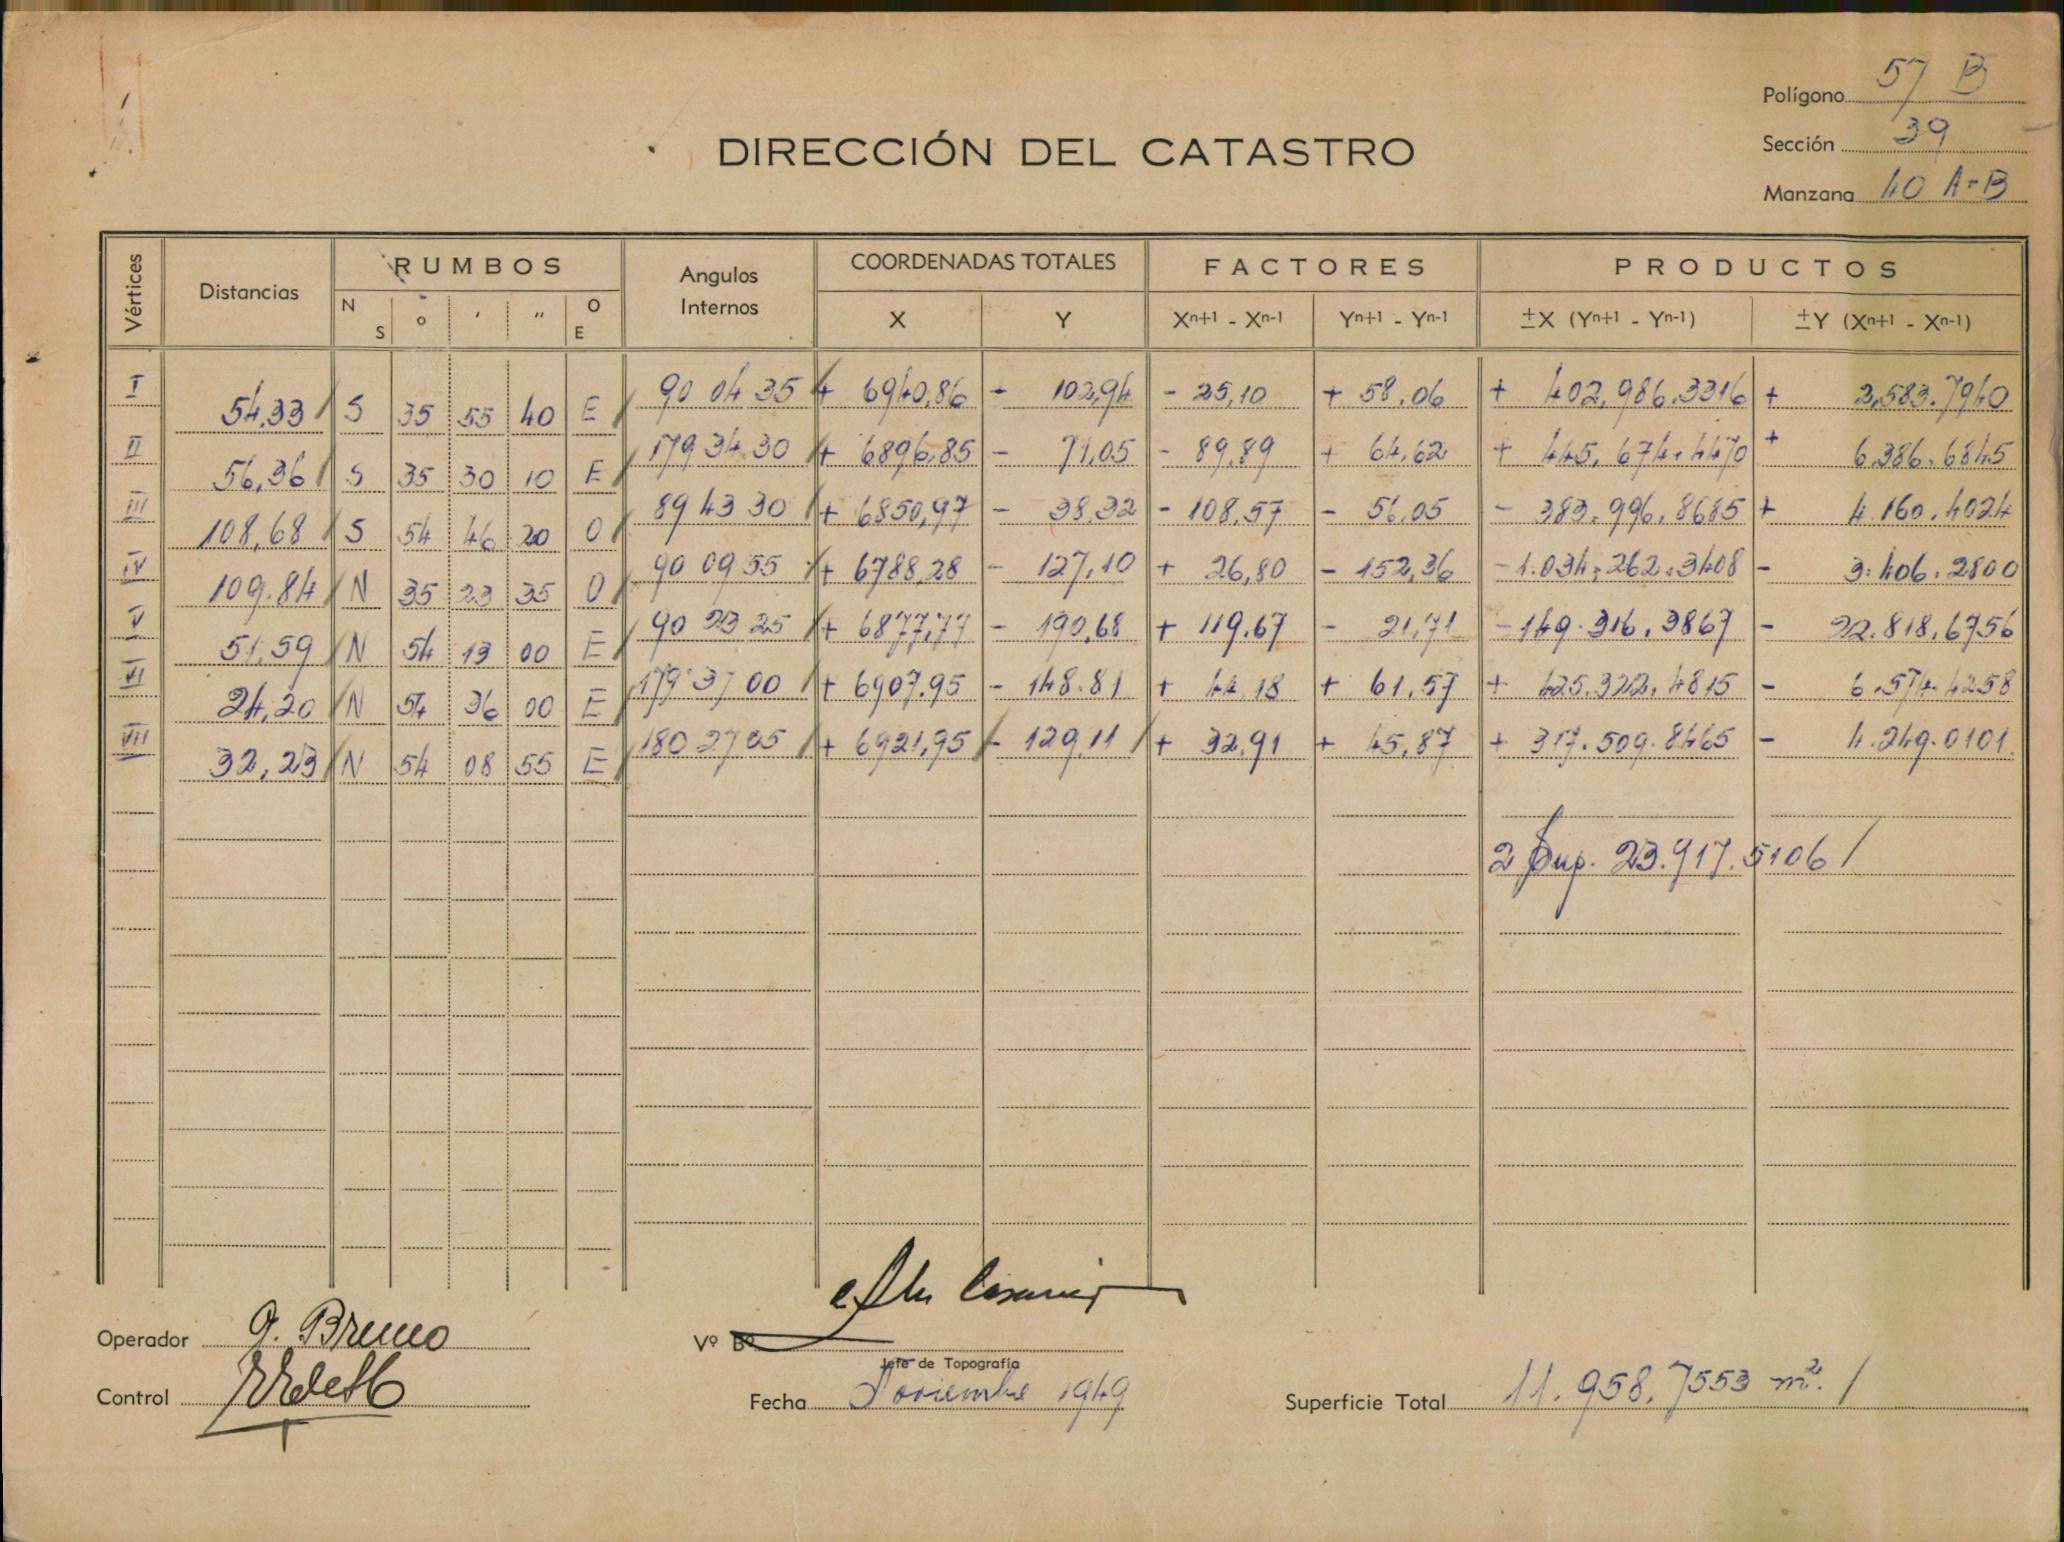 Polígono 57 B
DIRECCIÓN DEL CATASTRO
Sección 39
Manzana 40 A-B
Vértices Distancias RUMBOS Angulos Internos COORDENADAS TOTALES FACTORES PRODUCTOS
N S ° ' " O E X Y Xn+1 - Xn-1 Yn+1 - Yn-1 ±X (Yn+1 - Yn-1) ±Y (Xn+1 - Xn-1)
I 54,33 S 35 55 40 E 90 04 35 + 6940,86 - 102,94 - 25,10 + 58,06 + 402,986.3316 + 2,583.7940
II 56,36 S 35 30 10 E 179 34 30 + 6896,85 - 71,05 - 89,89 + 64,62 + 445,674.4470 + 6.386.6845
III 108,68 S 54 46 20 O 89 43 30 + 6850,97 - 38,32 - 108,57 - 56,05 - 383.996.8685 + 4.160.4024
IV 109.84 N 35 23 35 O 90 09 55 + 6788,28 - 127,10 + 26,80 - 152,36 - 1.034.262.3408 - 3.406.2800
V 51,59 N 54 13 00 E 90 23 25 + 6877,77 - 190,68 + 119.67 - 21,71 - 149.316.3867 - 22.818.6756
VI 24,20 N 54 36 00 E 179 37 00 + 6907.95 - 148.81 + 44,18 + 61,57 + 425.322.4815 - 6.574.4258
VII 32,23 N 54 08 55 E 180 27 05 + 6921,95 - 129,11 + 32,91 + 45,87 + 317.509.8465 - 4.249.0101
2 Sup. 23.917.5106 /
Operador G. Bruno
Vº Bº
Jefe de Topografía
Control
Fecha Noviembre 1949
Superficie Total 11.958.7553 m². /